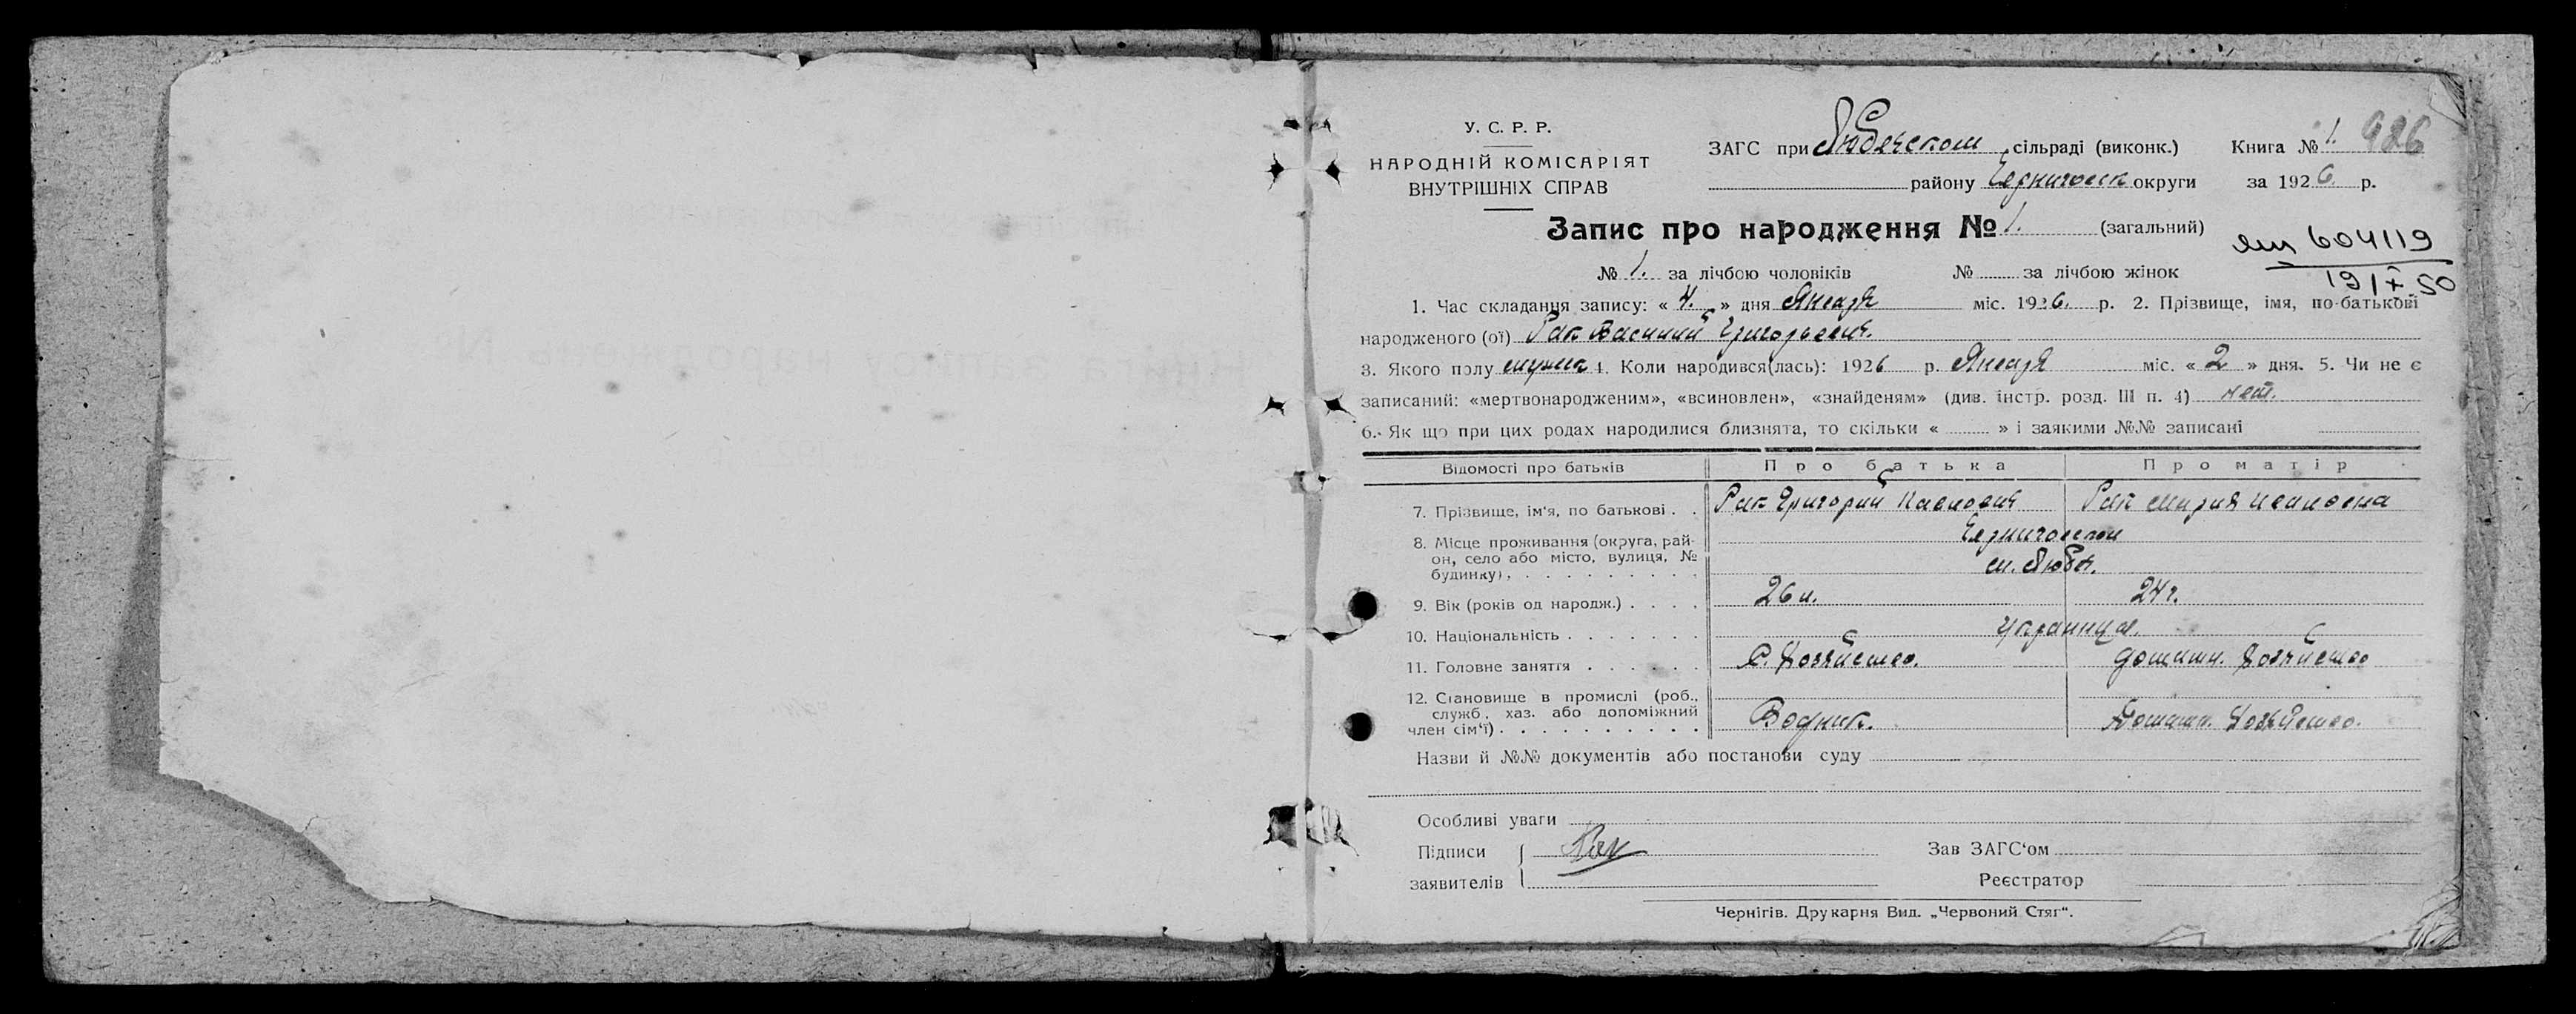 У. С. Р. Р.
НАРОДНІЙ КОМІСАРІЯТ
ВНУТРІШНІХ СПРАВ
ЗАГС при Любечском сільраді (виконк.) Книга № 1. 926
району Черниговск округи за 1926. р.
Запис про народження № 1. (загальний)
604119
19/X 50
№ 1. за лічбою чоловіків № за лічбою жінок
1. Час складання запису: « 4. » дня Января міс. 1926. р. 2. Прізвище, імя, по-батькові
народженого (ої) Рак Василий Григорьевич.
3. Якого полу мужск 4. Коли народився(лась): 1926 р. Января міс. « 2 » дня. 5. Чи не є
записаний: «мертвонародженим», «всиновлен», «знайденям» (див. інстр. розд. III п. 4) нет.
6. Як що при цих родах народилися близнята, то скільки « » і заякими №№ записані
Відомості про батьків Про батька Про матір
7. Прізвище, ім'я, по батькові . . Рак Григорий Павлович Рак Мария Ивановна
8. Місце проживання (округа, рай- Черниговской
он, село або місто, вулиця, № м. Любеч.
будинку) . . . . . . . . . .
9. Вік (років од народж.) . . . . 26 л. 24 г.
10. Національність . . . . . . . Украинцы.
11. Головне заняття . . . . . . С. Хозяйство. домашн. Хозяйство
12. Становище в промислі (роб.,
служб, хаз. або допоміжний
член сім'ї) . . . . . . . . . . Водник. Домашн. Хозяйство.
Назви й №№ документів або постанови суду
Особливі уваги
Підписи Рак Зав ЗАГС'ом
заявителів Реєстратор
Чернігів. Друкарня Вид. „Червоний Стяг“.